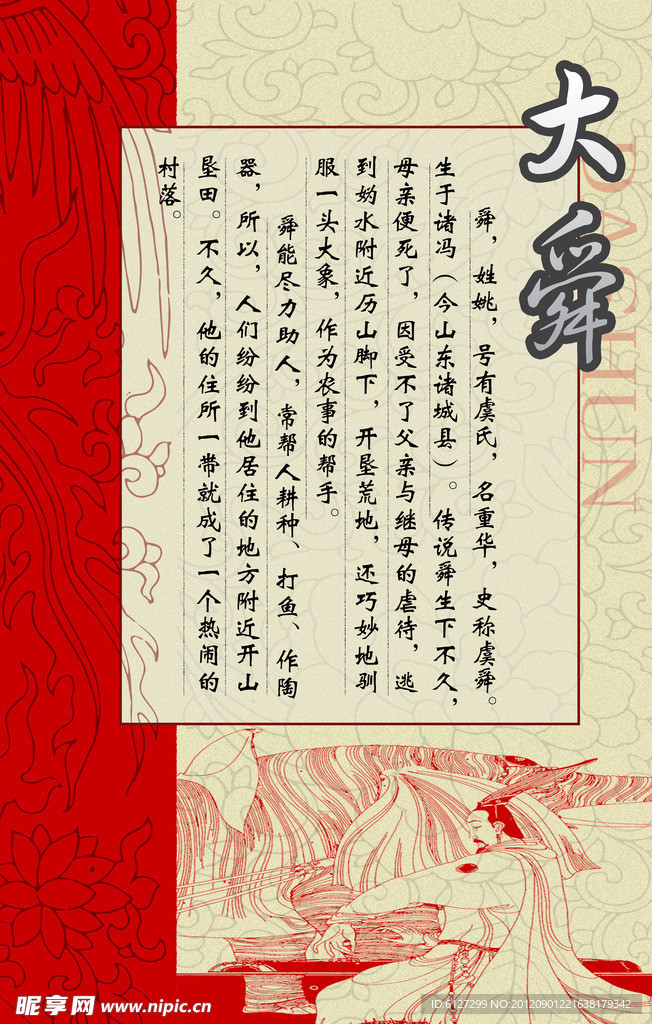 大舜
DASHUN
舜，姓姚，号有虞氏，名重华，史称虞舜。
生于诸冯（今山东诸城县）。传说舜生下不久，
母亲便死了，因受不了父亲与继母的虐待，逃
到妫水附近历山脚下，开垦荒地，还巧妙地驯
服一头大象，作为农事的帮手。
舜能尽力助人，常帮人耕种、打鱼、作陶
器，所以，人们纷纷到他居住的地方附近开山
垦田。不久，他的住所一带就成了一个热闹的
村落。
昵享网 www.nipic.cn
ID:6127299 NO:20120901221638179342